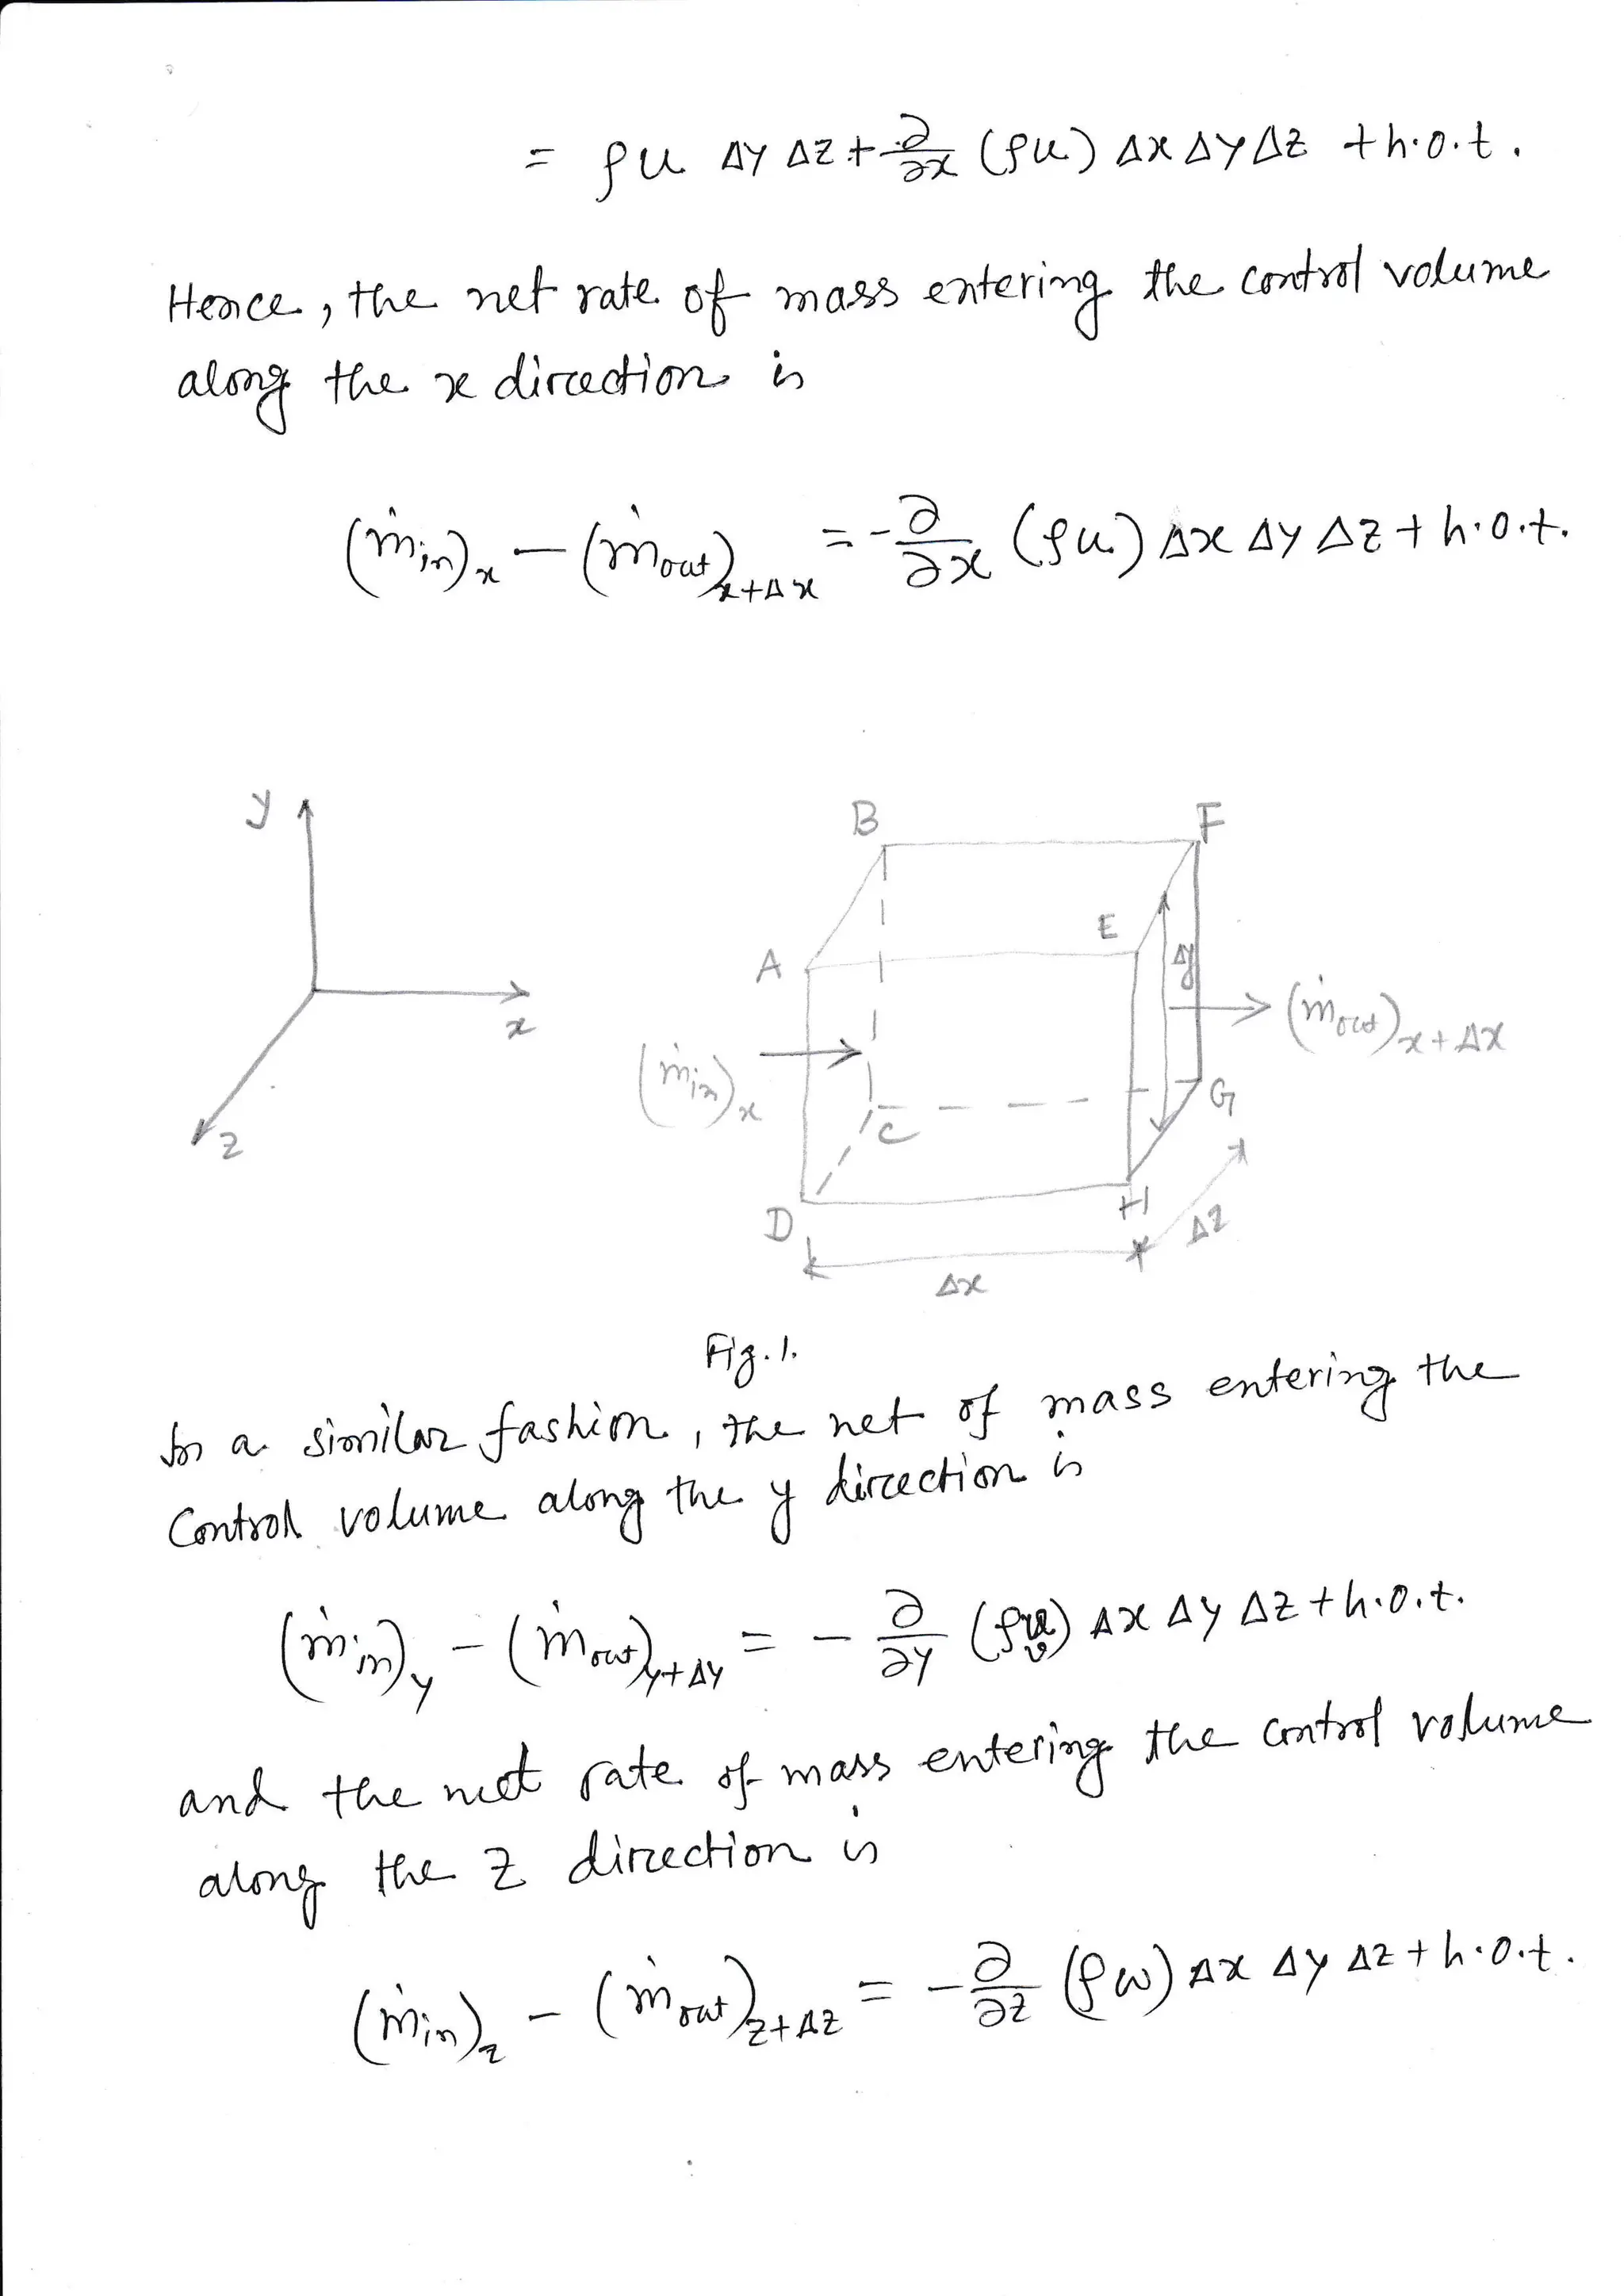 = ρu Δy Δz + ∂/∂x (ρu) Δx Δy Δz + h.o.t.
Hence, the net rate of mass entering the control volume
along the x direction is
(ṁin)x − (ṁout)x+Δx = −∂/∂x (ρu) Δx Δy Δz + h.o.t.
y
B
F
E
A
Δy
x
(ṁin)x
(ṁout)x+Δx
z
C
G
D
H
Δz
Δx
Fig. 1.
In a similar fashion, the net of mass entering the
Control volume along the y direction is
(ṁin)y − (ṁout)y+Δy = − ∂/∂y (ρv) Δx Δy Δz + h.o.t.
and the net rate of mass entering the control volume
along the z direction is
(ṁin)z − (ṁout)z+Δz = −∂/∂z (ρw) Δx Δy Δz + h.o.t.